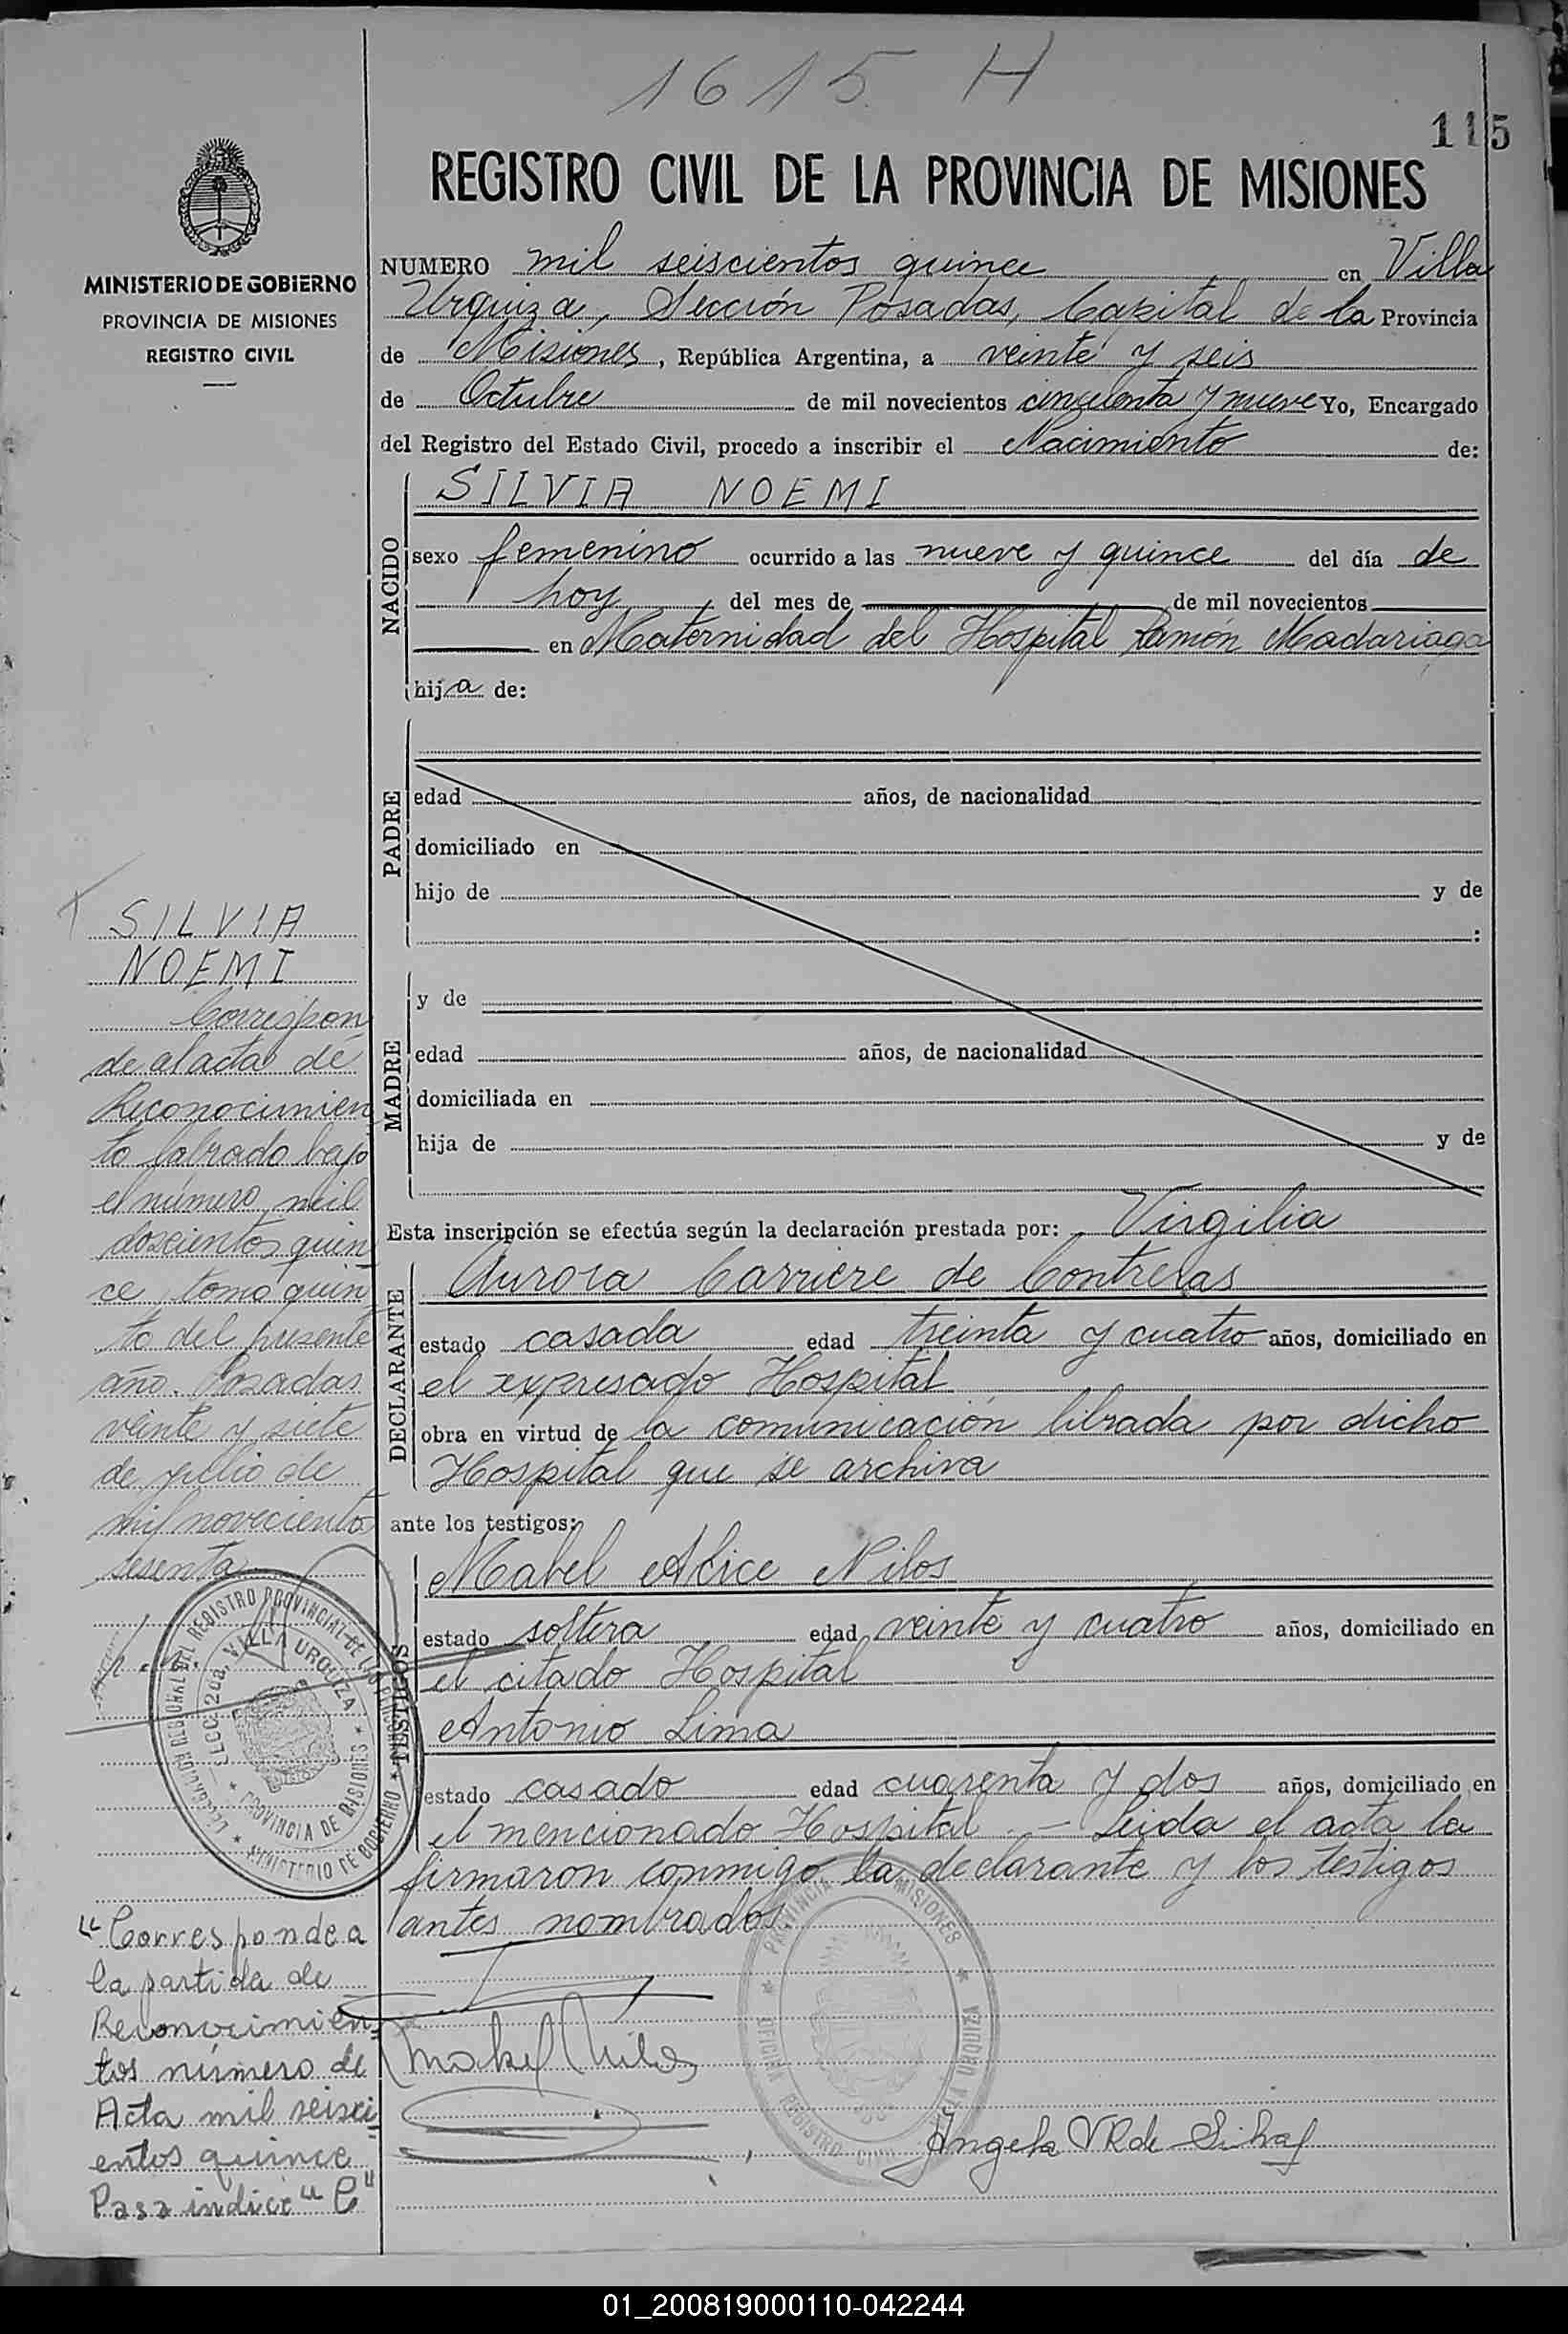 1615 H
115
REGISTRO CIVIL DE LA PROVINCIA DE MISIONES
MINISTERIO DE GOBIERNO
PROVINCIA DE MISIONES
REGISTRO CIVIL
NUMERO mil seiscientos quince en Villa
Urquiza, Sección Posadas, Capital de la Provincia
de Misiones, República Argentina, a veinte y seis
de Octubre de mil novecientos cincuenta y nueve Yo, Encargado
del Registro del Estado Civil, procedo a inscribir el Nacimiento de:
NACIDO
SILVIA NOEMI
sexo femenino ocurrido a las nueve y quince del día de
hoy del mes de de mil novecientos
en Maternidad del Hospital Ramón Madariaga
hija de:
PADRE
edad años, de nacionalidad
domiciliado en
hijo de y de
:
MADRE
y de
edad años, de nacionalidad
domiciliada en
hija de y de
Esta inscripción se efectúa según la declaración prestada por: Virgilia
DECLARANTE
Aurora Carriere de Contreras
estado casada edad treinta y cuatro años, domiciliado en
el expresado Hospital
obra en virtud de la comunicación librada por dicho
Hospital que se archiva
ante los testigos:
TESTIGOS
Mabel Alice Nilos
estado soltera edad veinte y cuatro años, domiciliado en
el citado Hospital
Antonio Lima
estado casado edad cuarenta y dos años, domiciliado en
el mencionado Hospital.- Leida el acta la
firmaron conmigo la declarante y los testigos
antes nombrados
Mabel Nilos
Angela VR de Silva
PROVINCIA MISIONES
OFICINA REGISTRO CIVIL VILLA URQUIZA
SILVIA
NOEMI
Correspon
de al acta de
Reconocimien
to labrado bajo
el número mil
doscientos quin
ce, tomo quin
to del presente
año. Posadas
veinte y siete
de julio de
mil noveciento
sesenta
DELEGACION REGIONAL DEL REGISTRO PROVINCIAL DE LAS
MINISTERIO DE GOBIERNO
SECC. 2da. VILLA URQUIZA
PROVINCIA DE MISIONES
"Corresponde a
la partida de
Reconocimien
tos número de
Acta mil seisci
entos quince
Pasa indice "C"
01_200819000110-042244